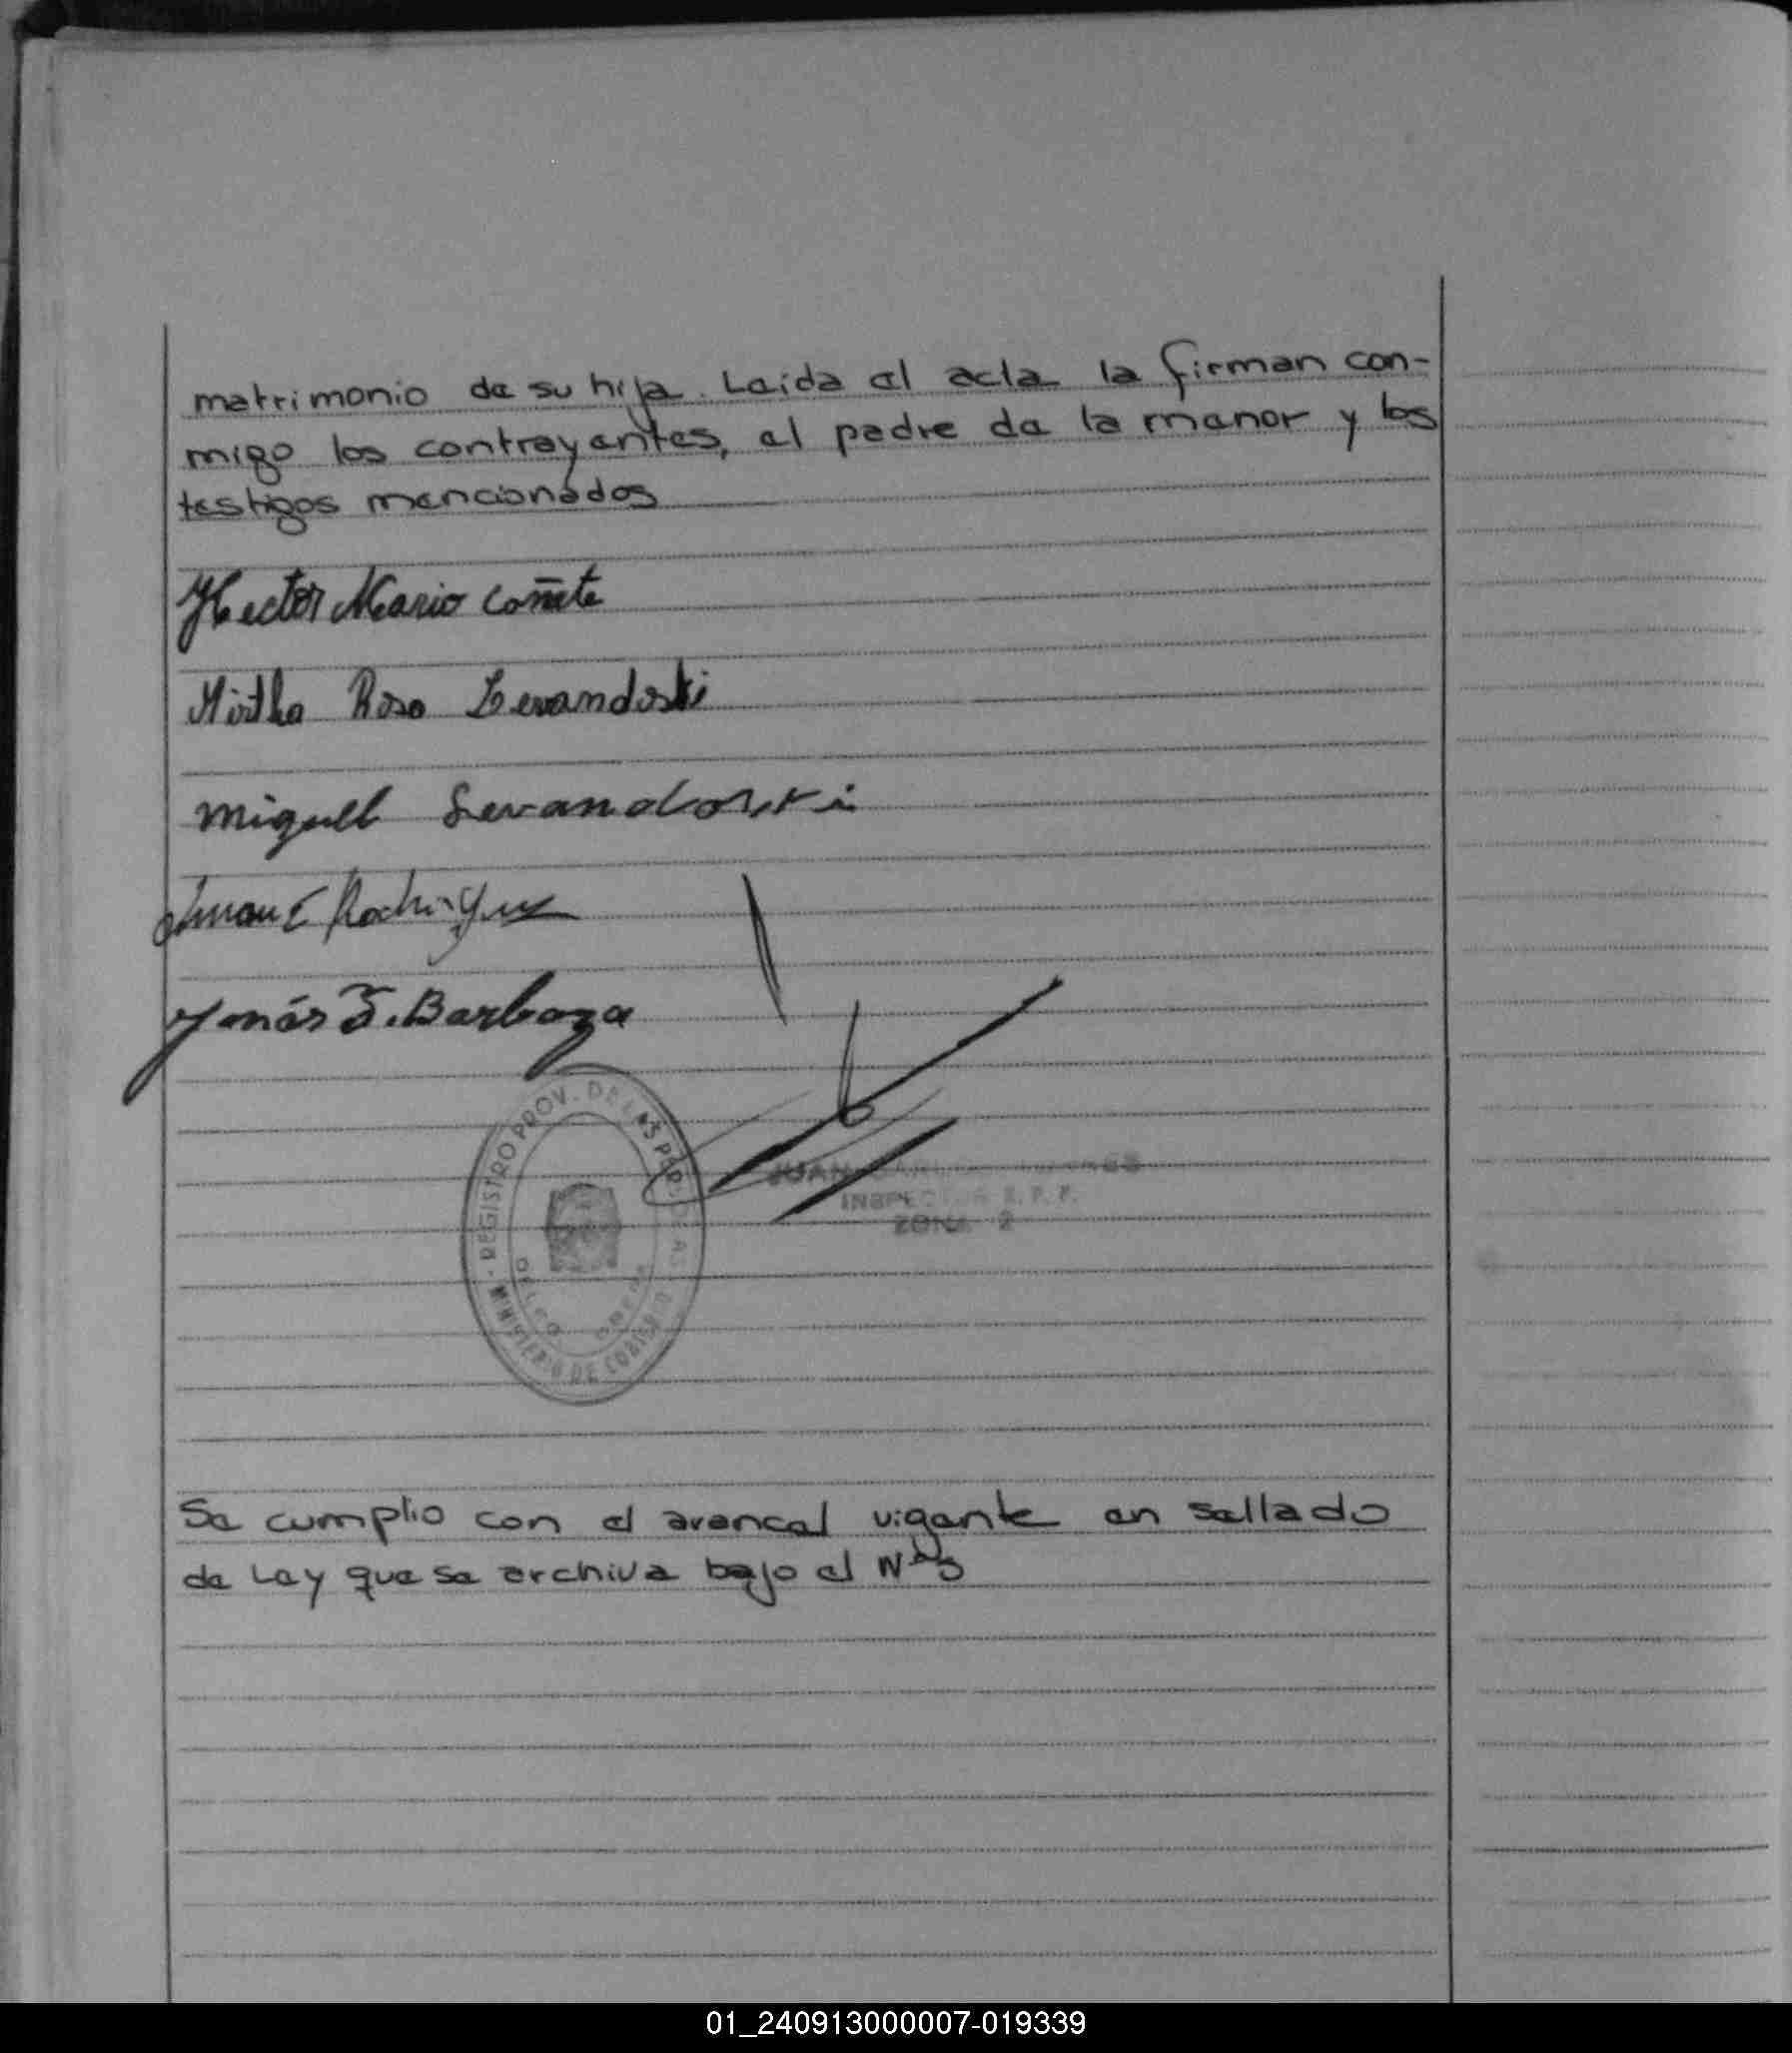 matrimonio de su hija. Leida el acta la firman con-
migo los contrayentes, el padre de la menor y los
testigos mencionados
Hector Mario Cañete
Mirtha Rosa Levandoski
Miguel Levandoski
Juan E Rodriguez
Barboza
REGISTRO PROV. DE LAS PER. DE AS
MINISTERIO DE GOBIERNO
JUAN
INSPECTOR R. P. P.
ZONA 2
Se cumplio con el arancel vigente en sellado
de Ley que se archiva bajo el Nº
01_240913000007-019339